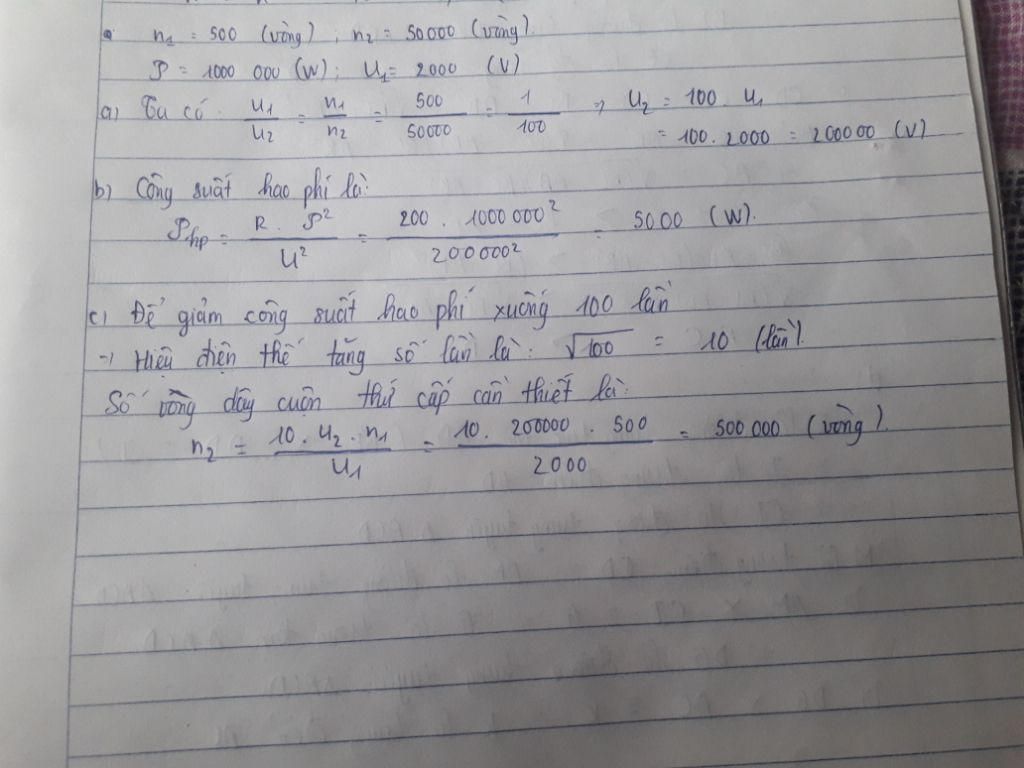 n₁ = 500 (vòng) ; n₂ = 50000 (vòng).
P = 1000 000 (W) ; U₁ = 2000 (V)
a) Ta có. U₁/U₂ = n₁/n₂ = 500/50000 = 1/100 => U₂ = 100. U₁
= 100. 2000 = 200000 (V)
b) Công suất hao phí là:
P_hp = R. P²/U² = 200 . 1000 000²/200000² = 5000 (W).
c) Để giảm công suất hao phí xuống 100 lần
=> Hiệu điện thế tăng số lần là: √100 = 10 (lần).
Số vòng dây cuộn thứ cấp cần thiết là:
n₂ = 10. U₂. n₁/U₁ = 10. 200000 . 500/2000 = 500 000 (vòng).